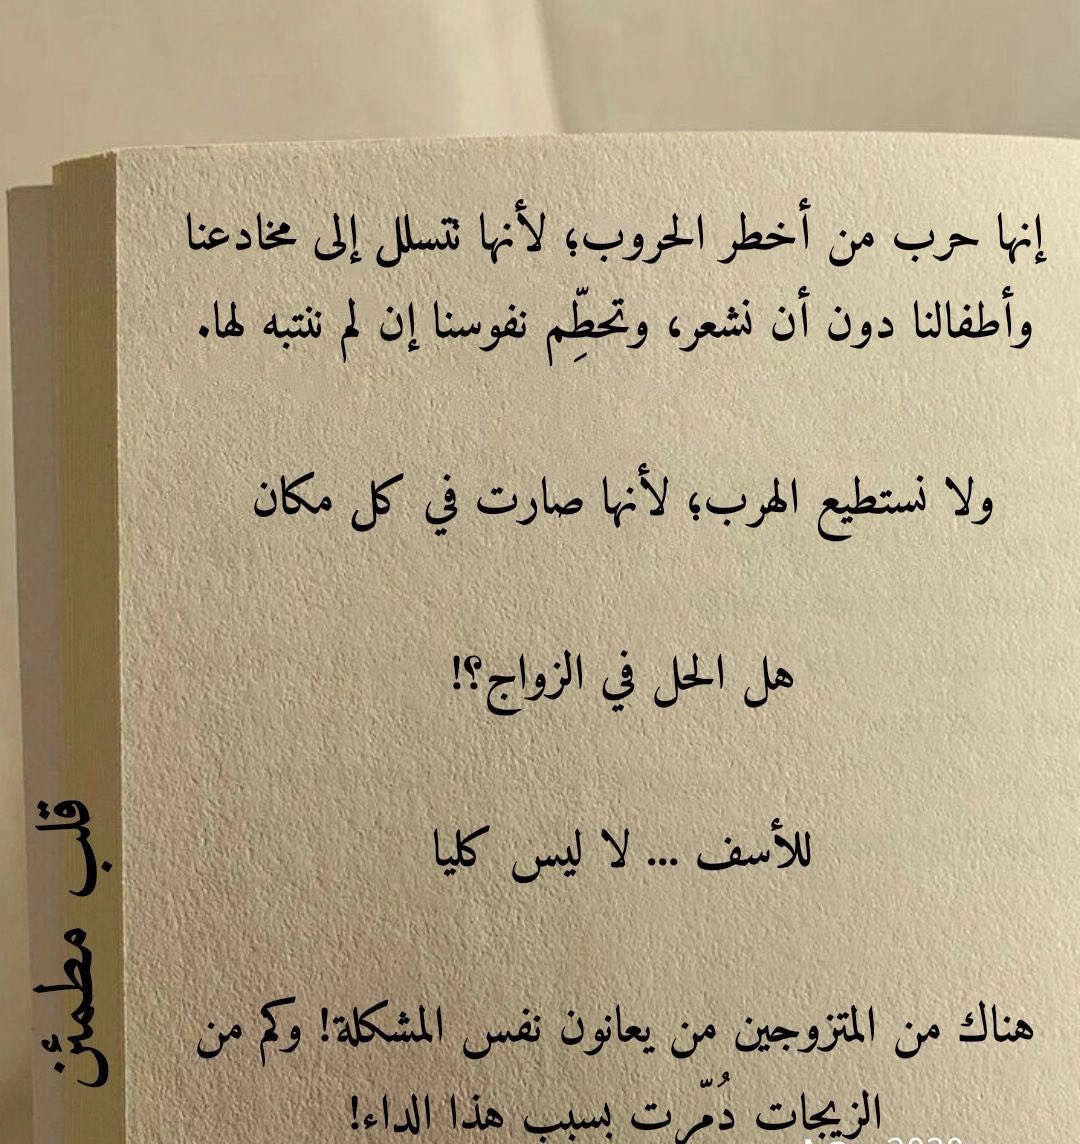 إنها حرب من أخطر الحروب؛ لأنها تتسلل إلى مخادعنا
وأطفالنا دون أن نشعر، وتحطِّم نفوسنا إن لم ننتبه لها.
ولا نستطيع الهرب؛ لأنها صارت في كل مكان
هل الحل في الزواج؟!
للأسف ... لا ليس كليا
هناك من المتزوجين من يعانون نفس المشكلة! وكم من
الزيجات دُمّرت بسبب هذا الداء!
قلب مطمئن